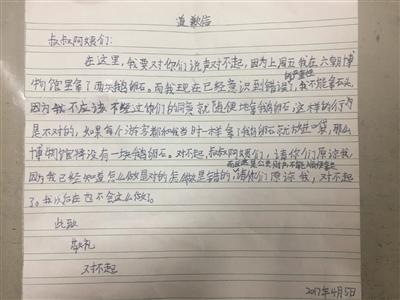 道歉信
叔叔阿姨们：
在这里，我要对你们说声对不起，因为上周五我在六朝博
物馆里拿了两块鹅卵石。而我现在已经意识到错误了，我不能拿石头，
的严重性
因为我不应该不经过你们的同意就随便地拿鹅卵石，这样的行为
是不对的，如果每个游客都和我当时一样拿了鹅卵石就放进口袋，那么
博物馆将没有一块鹅卵石。对不起，叔叔阿姨们，请你们原谅我，
而且这是公共财产不能随便拿
因为我已经知道怎么做是对的怎么做是错的，请你们原谅我，对不起
了。我以后在也不会这么做了。
此致
敬礼
对不起
2017年4月5日